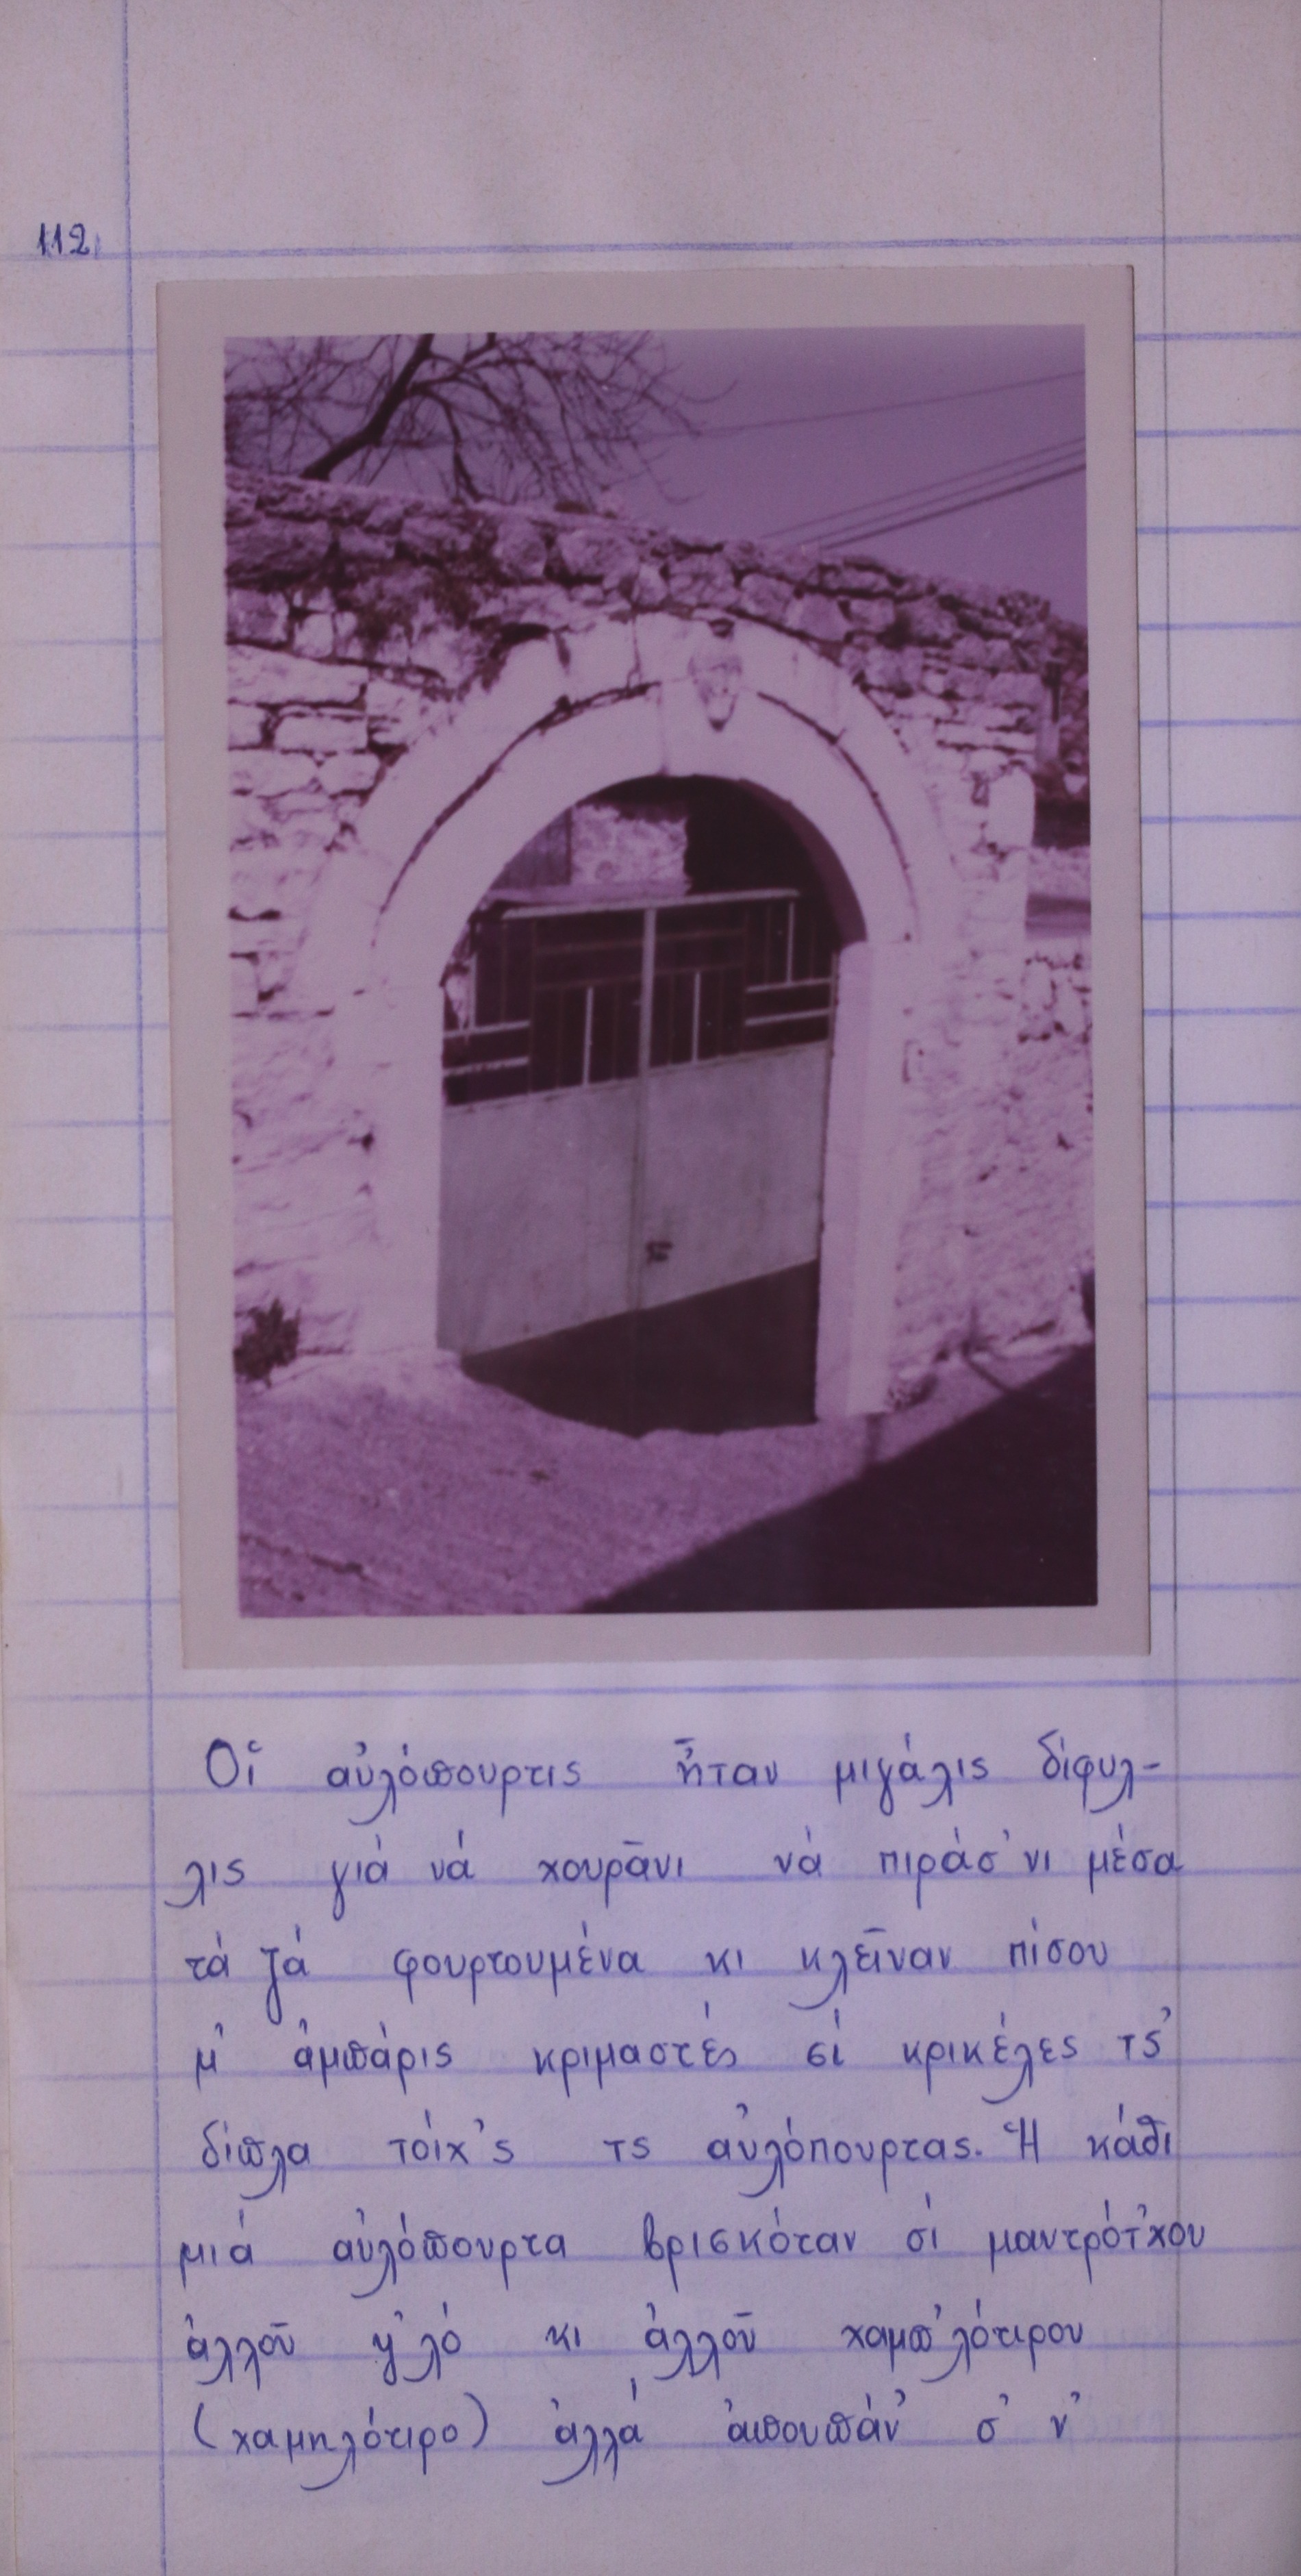 112
Οἱ αὐλόπουρτις ἦταν μιγάλις δίφυλ-
λις γιά νά χουρᾶνι νά πιράσ'νι μέσα
τά ζά φουρτουμένα κι κλεῖναν πίσου
μ' ἀμπάρις κριμαστές σί κρικέλες τς'
δίπλα τοίχ'ς τς αὐλόπουρτας. Ἡ κάθι
μιά αὐλόπουρτα βρισκόταν σί μαντρότ'χου
ἀλλοῦ ψ'λό κι ἀλλοῦ χαμπ'λότιρου
(χαμηλότιρο) ἀλλά ἀπουπάν' σ' ν'